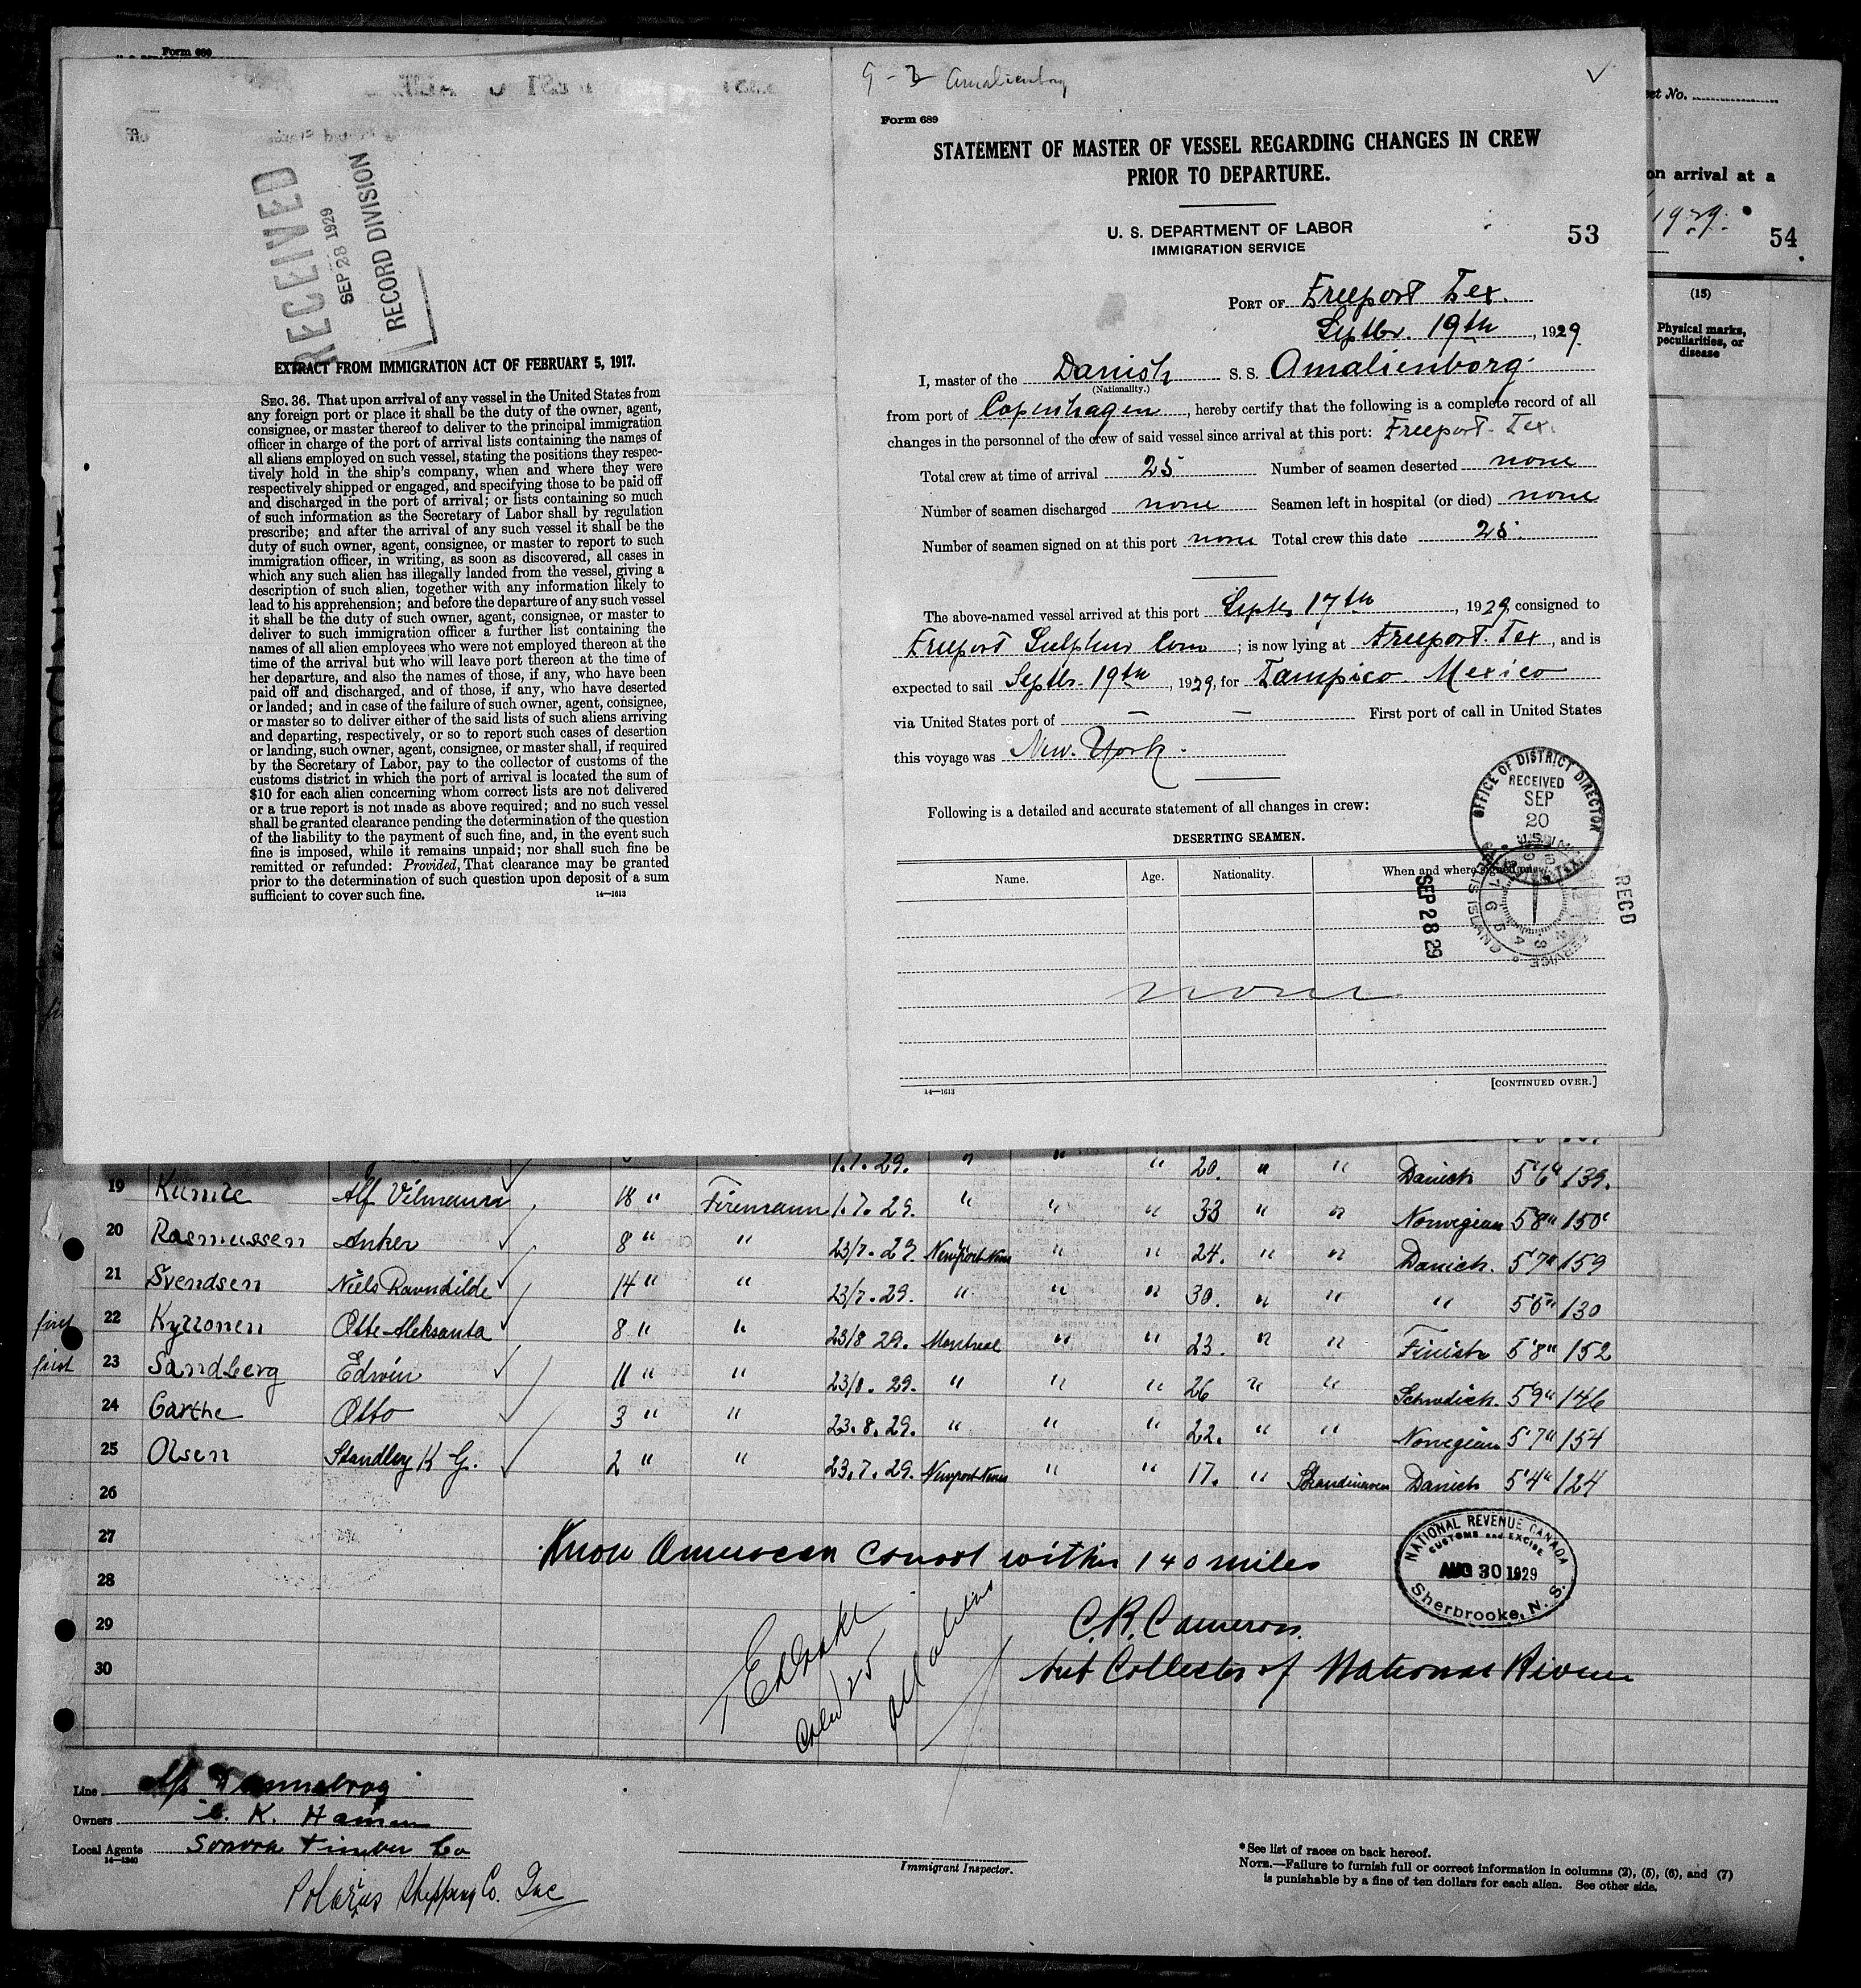 Form 689
RECEIVED
SEP 28 1929
RECORD DIVISION
EXTRACT FROM IMMIGRATION ACT OF FEBRUARY 5, 1917.
SEC. 36. That upon arrival of any vessel in the United States from
any foreign port or place it shall be the duty of the owner, agent,
consignee, or master thereof to deliver to the principal immigration
officer in charge of the port of arrival lists containing the names of
all aliens employed on such vessel, stating the positions they respec-
tively hold in the ship's company, when and where they were
respectively shipped or engaged, and specifying those to be paid off
and discharged in the port of arrival; or lists containing so much
of such information as the Secretary of Labor shall by regulation
prescribe; and after the arrival of any such vessel it shall be the
duty of such owner, agent, consignee, or master to report to such
immigration officer, in writing, as soon as discovered, all cases in
which any such alien has illegally landed from the vessel, giving a
description of such alien, together with any information likely to
lead to his apprehension; and before the departure of any such vessel
it shall be the duty of such owner, agent, consignee, or master to
deliver to such immigration officer a further list containing the
names of all alien employees who were not employed thereon at the
time of the arrival but who will leave port thereon at the time of
her departure, and also the names of those, if any, who have been
paid off and discharged, and of those, if any, who have deserted
or landed; and in case of the failure of such owner, agent, consignee,
or master so to deliver either of the said lists of such aliens arriving
and departing, respectively, or so to report such cases of desertion
or landing, such owner, agent, consignee, or master shall, if required
by the Secretary of Labor, pay to the collector of customs of the
customs district in which the port of arrival is located the sum of
$10 for each alien concerning whom correct lists are not delivered
or a true report is not made as above required; and no such vessel
shall be granted clearance pending the determination of the question
of the liability to the payment of such fine, and, in the event such
fine is imposed, while it remains unpaid; nor shall such fine be
remitted or refunded: Provided, That clearance may be granted
prior to the determination of such question upon deposit of a sum
sufficient to cover such fine. 14—1613
9 - 3 Amalienborg ✓
Form 689
STATEMENT OF MASTER OF VESSEL REGARDING CHANGES IN CREW
PRIOR TO DEPARTURE.
U. S. DEPARTMENT OF LABOR
IMMIGRATION SERVICE
53
PORT OF Freeport Tex.
Septbr. 19th, 1929
I, master of the Danish S. S. Amalienborg
(Nationality.)
from port of Copenhagen, hereby certify that the following is a complete record of all
changes in the personnel of the crew of said vessel since arrival at this port: Freeport. Tex.
Total crew at time of arrival 25 Number of seamen deserted none
Number of seamen discharged none Seamen left in hospital (or died) none
Number of seamen signed on at this port none Total crew this date 25.
The above-named vessel arrived at this port Septbr 17th, 1929, consigned to
Freeport Sulphur Com; is now lying at Freeport. Tex, and is
expected to sail Septbr. 19th, 1929, for Tampico Mexico
via United States port of — — First port of call in United States
this voyage was New. York.
Following is a detailed and accurate statement of all changes in crew:
DESERTING SEAMEN.
Name. Age. Nationality. When and where signed on.
none
OFFICE OF DISTRICT DIRECTOR
RECEIVED
SEP
20
SEP 28 29
RECD
14—1613 [CONTINUED OVER.]
et No.
on arrival at a
1929.
54
(15)
Physical marks,
peculiarities, or
disease
1.7.29. " " " 20. " " Danish 5'6" 139.
19 Kunze Alf Vilmann 18 " Firemann 1.7.29. " " " 33 " " Norwegian 5'8" 150
20 Rasmussen Anker 8 " " 23/7.29. Newport News " " 24. " " Danish. 5'7" 159
21 Svendsen Niels Ravnkilde 14 " " 23/7.29. " " " 30. " " " 5'5" 130
first 22 Kyrronen Otto Aleksanta 8 " " 23/8 29. Montreal " " 23. " " Finish 5'8" 152
first 23 Sandberg Edwin 11 " " 23/8.29. " " " 26 " " Schwedish. 5'9" 146
24 Garthe Otto 3 " " 23.8.29. " " " 22. " " Norwegian 5'7" 154
25 Olsen Standley K G. 2 " " 23.7.29. Newport News " " 17. " Skandinavien Danish 5'4" 124
26
27
Know American Consol within 140 miles
28
29
C. R. Cameron.
30
Sub Collector of National Revenue
25
all aliens
NATIONAL REVENUE CANADA
CUSTOMS and EXCISE
AUG 30 1929
Sherbrooke, N. S.
Line A/S Dannebrog
Owners C. K. Hansen
Local Agents Sonora Timber Co
14—1240
Polarus Shipping Co. Inc
Immigrant Inspector.
*See list of races on back hereof.
NOTE.—Failure to furnish full or correct information in columns (2), (5), (6), and (7)
is punishable by a fine of ten dollars for each alien. See other side.